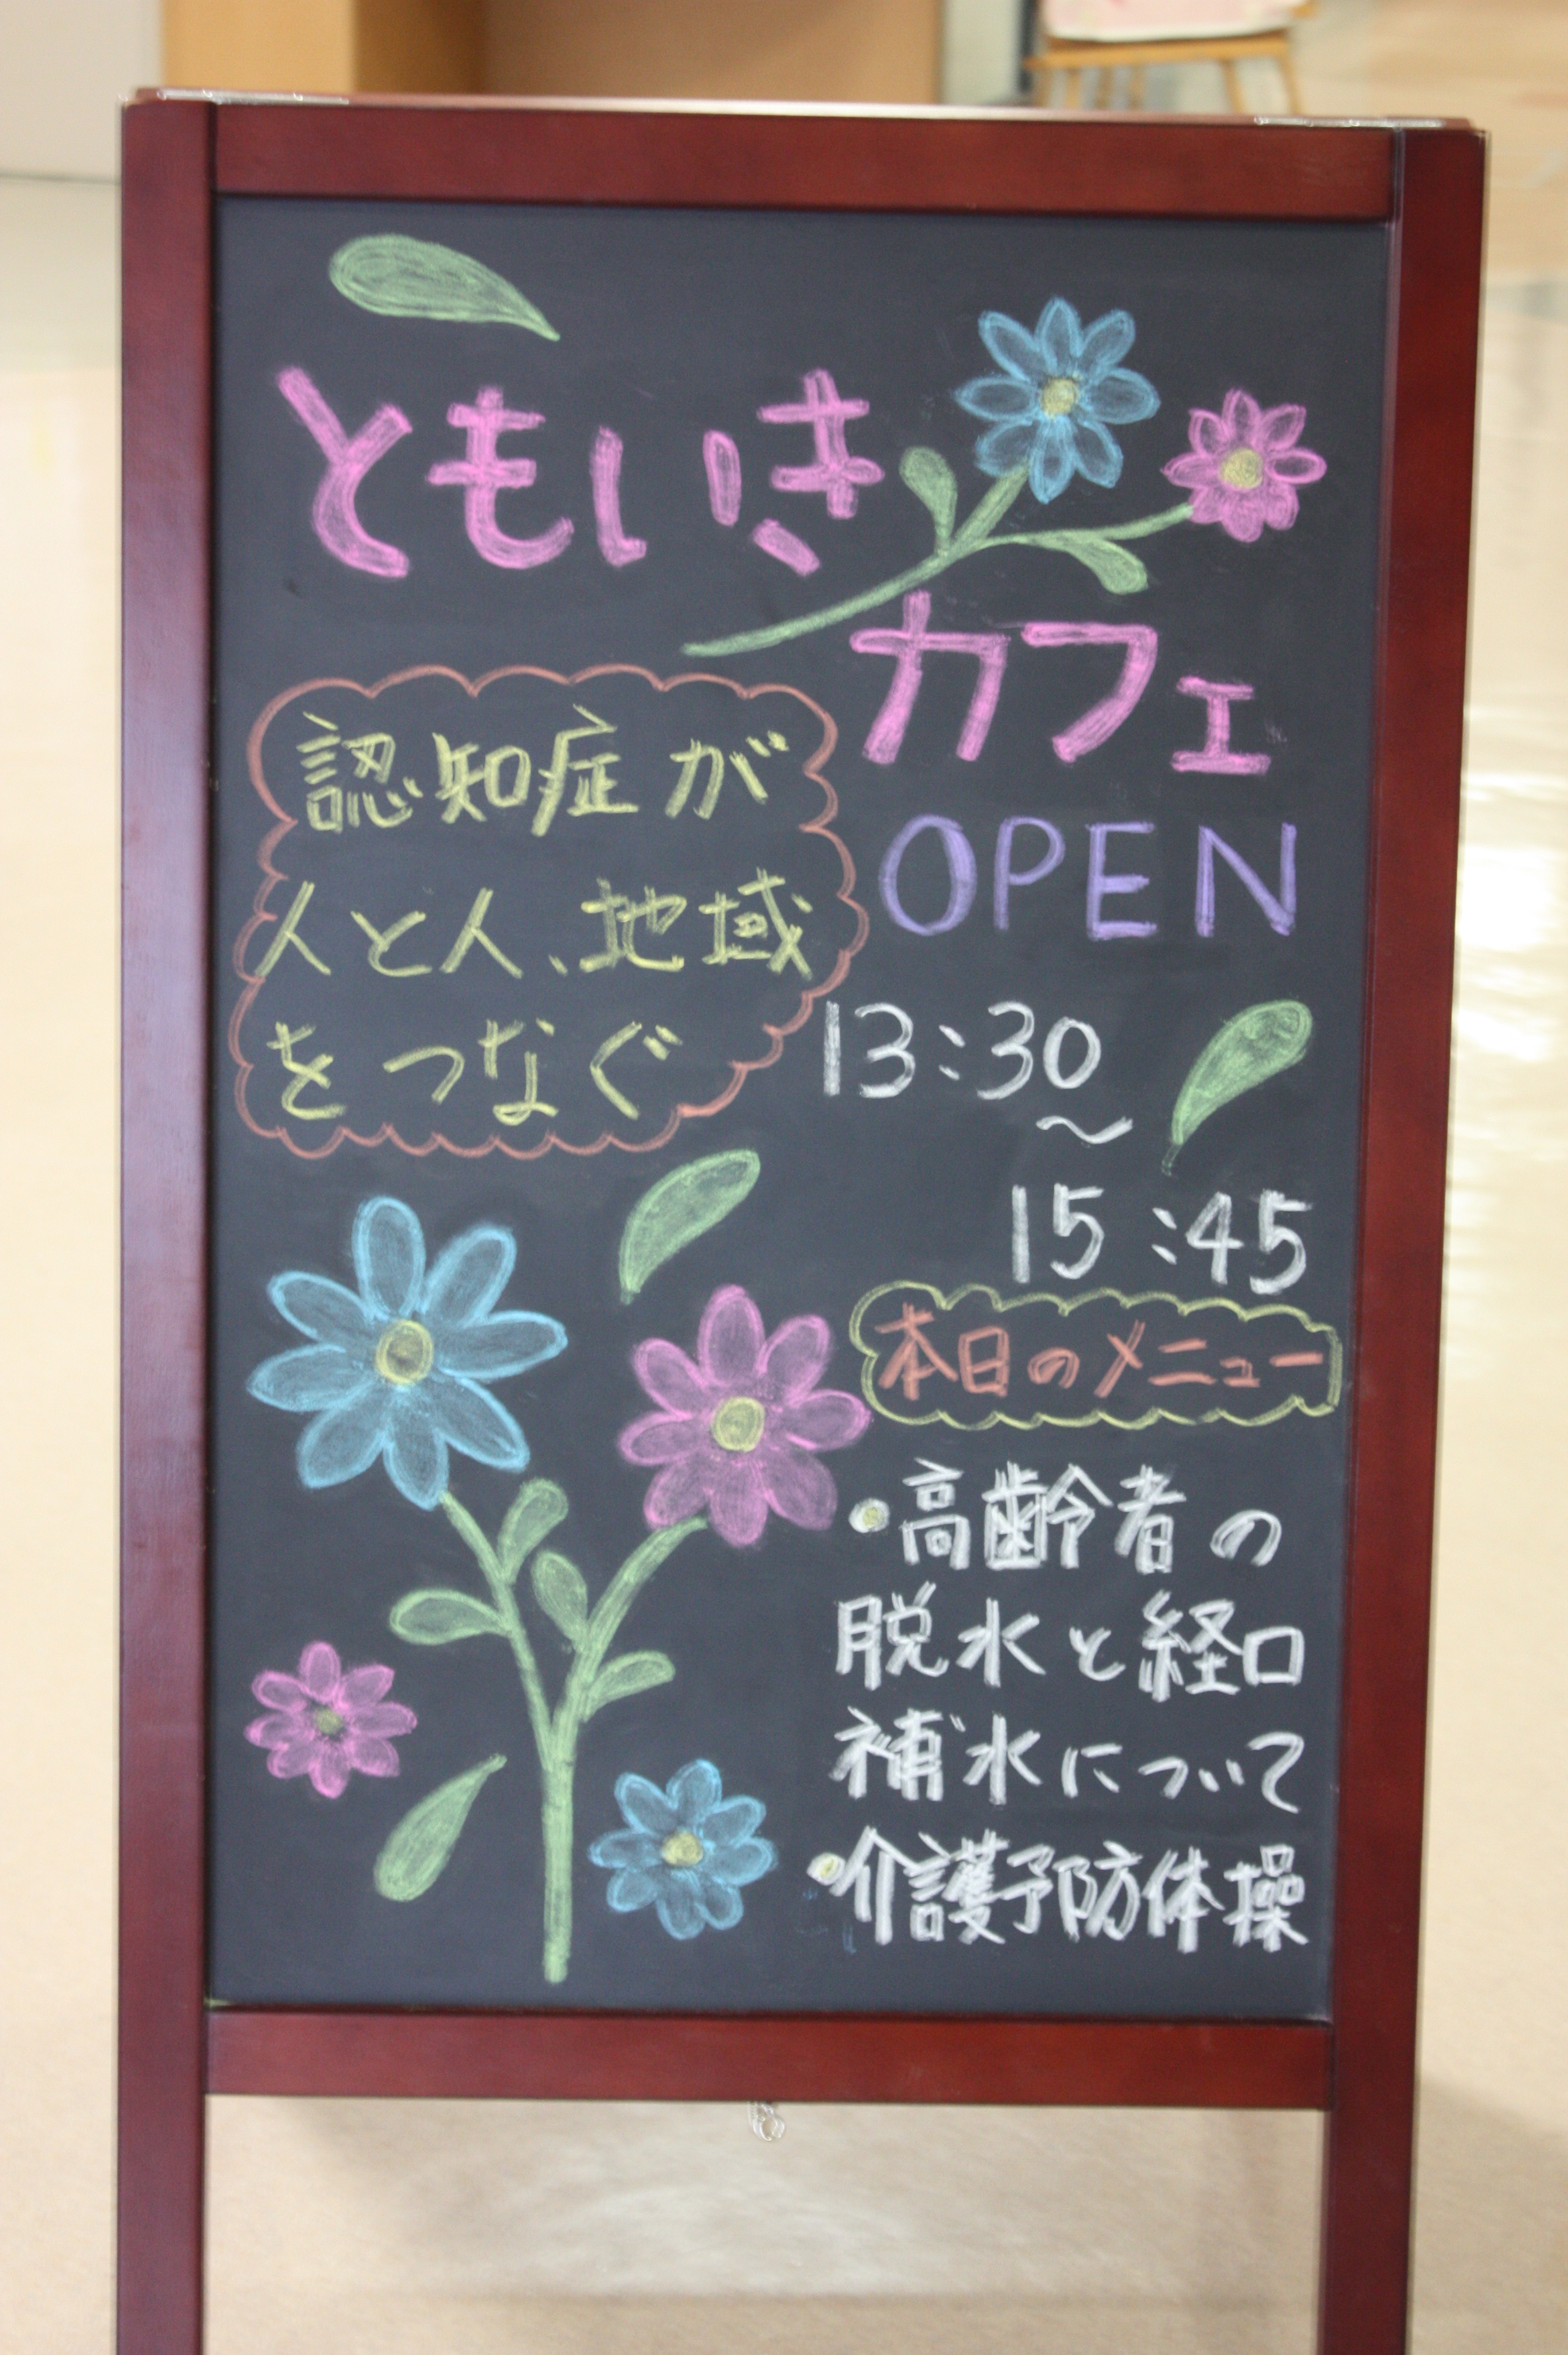 ともいき
カフェ
OPEN
認知症が
人と人、地域
をつなぐ
13:30
～
15:45
本日のメニュー
・高齢者の
脱水と経口
補水について
・介護予防体操